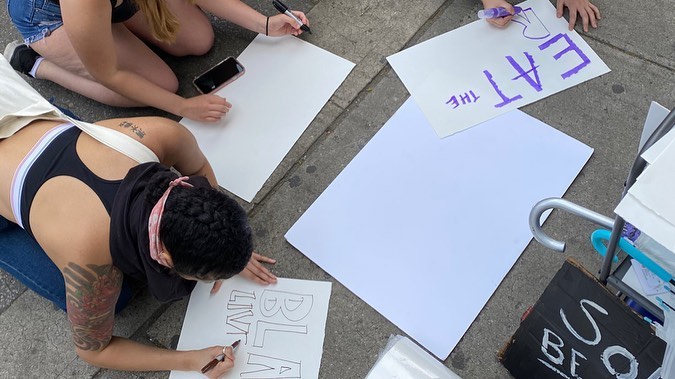 EAT
THE
BLA
LIV
SO
BE